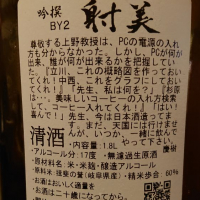 吟撰
BY2
射美
尊敬する上野教授は、PCの電源の入れ
方も分からなかった。しかし、PCが何が
出来るか、誰が何が出来るかを把握して
いた。『立川、この概略図を作っておい
てくれ！中西、これをグラフにしておいて
くれ』「先生、私は何を？」『履田
は…、美味しいコーヒーの入れ方検索
して、コーヒー入れてくれ！』「はい！喜
んで！」先生、今は日本酒造ってま
す…。まだ、天国には行けませ
んが、いつか、一緒に飲んで
やってください。
清酒
内容量：1.8L
・アルコール分：17度 ・無濾過生原酒
・原材料名：米・米麹・醸造アルコール
・原料米：揖斐の誉(岐阜県産)・精米歩合 60%
お酒はおいしく適量を
お酒は二十歳になってから。